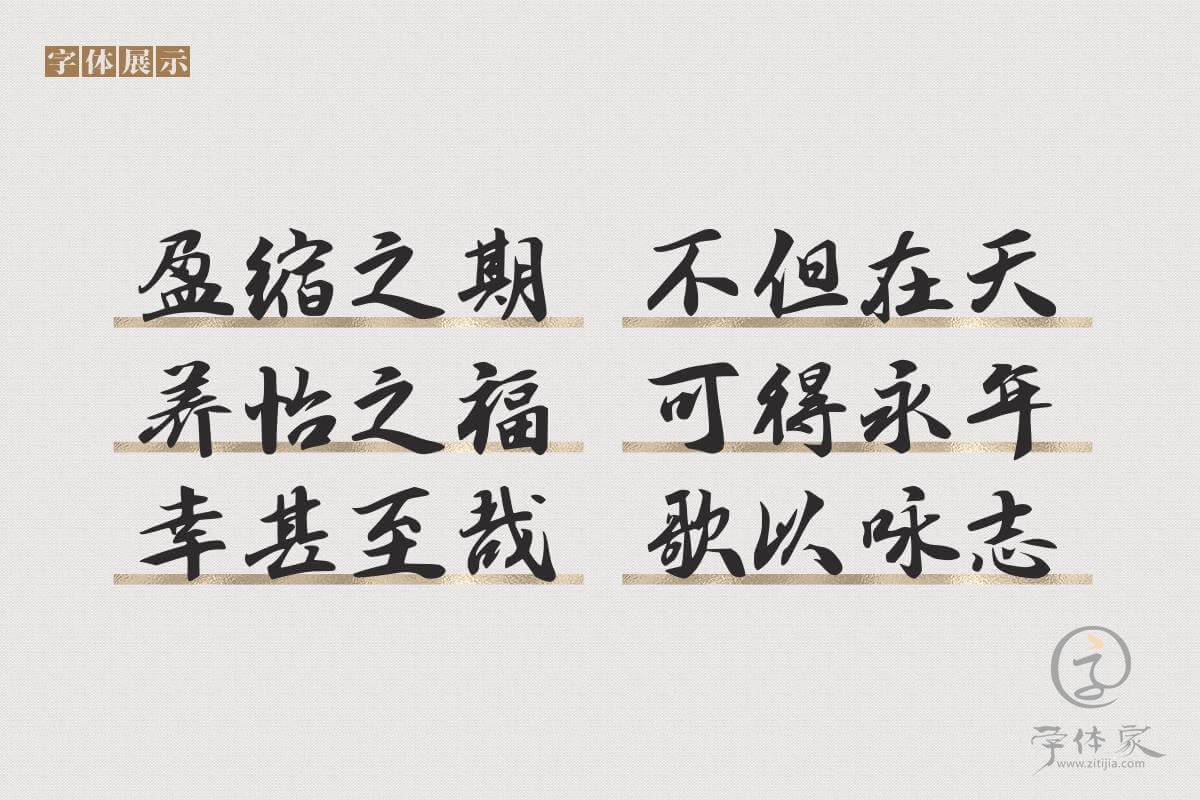 字体展示
盈缩之期 不但在天
养怡之福 可得永年
幸甚至哉 歌以咏志
字体家
www.zitijia.com